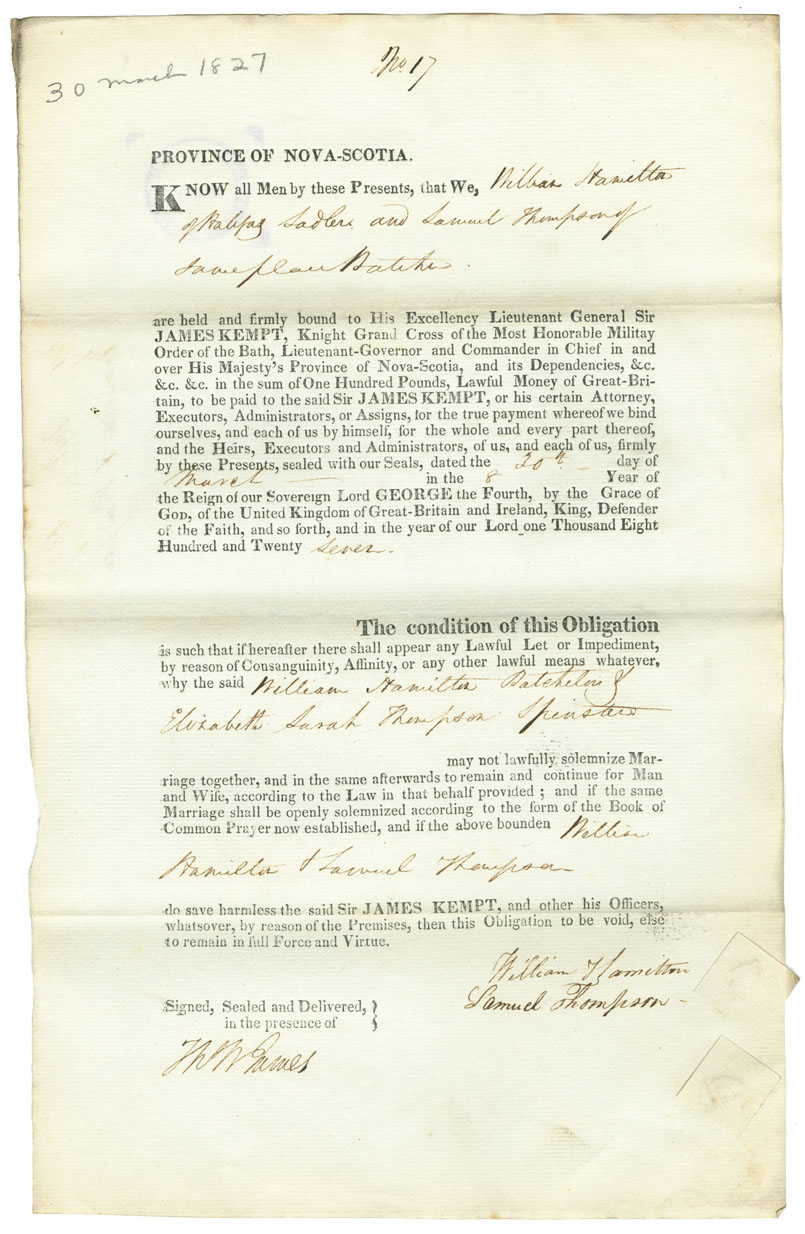 30 March 1827
No. 17
PROVINCE OF NOVA-SCOTIA.
KNOW all Men by these Presents, that We, William Hamilton
of Halifax Sadler and Samuel Thompson of
same place Butcher.
are held and firmly bound to His Excellency Lieutenant General Sir
JAMES KEMPT, Knight Grand Cross of the Most Honorable Militay
Order of the Bath, Lieutenant-Governor and Commander in Chief in and
over His Majesty's Province of Nova-Scotia, and its Dependencies, &c.
&c. &c. in the sum of One Hundred Pounds, Lawful Money of Great-Bri-
tain, to be paid to the said Sir JAMES KEMPT, or his certain Attorney,
Executors, Administrators, or Assigns, for the true payment whereof we bind
ourselves, and each of us by himself, for the whole and every part thereof,
and the Heirs, Executors and Administrators, of us, and each of us, firmly
by these Presents, sealed with our Seals, dated the 30th day of
March in the 8 Year of
the Reign of our Sovereign Lord GEORGE the Fourth, by the Grace of
GOD, of the United Kingdom of Great-Britain and Ireland, King, Defender
of the Faith, and so forth, and in the year of our Lord one Thousand Eight
Hundred and Twenty seven.
The condition of this Obligation
is such that if hereafter there shall appear any Lawful Let or Impediment,
by reason of Consanguinity, Affinity, or any other lawful means whatever,
why the said William Hamilton Batchelor &
Elizabeth Sarah Thompson Spinster
may not lawfully solemnize Mar-
riage together, and in the same afterwards to remain and continue for Man
and Wife, according to the Law in that behalf provided ; and if the same
Marriage shall be openly solemnized according to the form of the Book of
Common Prayer now established, and if the above bounden William
Hamilton & Samuel Thompson
do save harmless the said Sir JAMES KEMPT, and other his Officers,
whatsover, by reason of the Premises, then this Obligation to be void, else
to remain in full Force and Virtue.
William Hamilton
Samuel Thompson
Signed, Sealed and Delivered, }
in the presence of }
Th W James